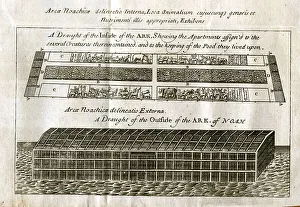 Arca Noachica delineatio Interna, Loca Animalium cujuscunqs generis et
Nutrimenti illis appropriati, Exhibens
A Draught of the Inside of the ARK, Shewing the Apartments assign'd to the
several Creatures therein contained, and to the Keeping of the Food they lived upon.
Arcæ Noachicæ delineatio Externa.
A Draught of the Outside of the ARK, of NOAH